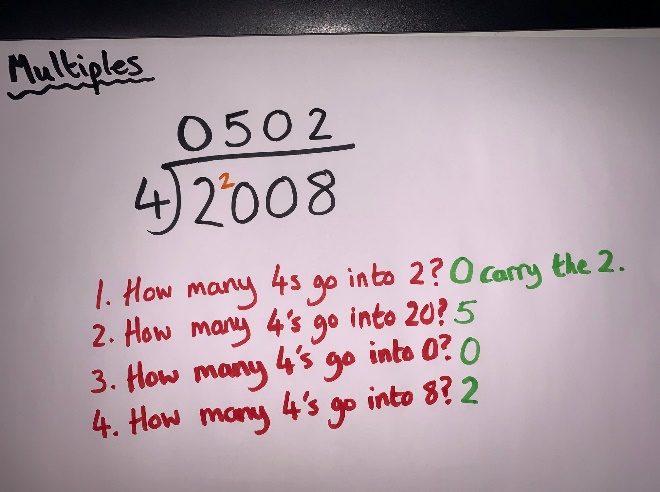 Multiples
0502
4)2²008
1. How many 4s go into 2? 0 carry the 2.
2. How many 4's go into 20? 5
3. How many 4's go into 0? 0
4. How many 4's go into 8? 2